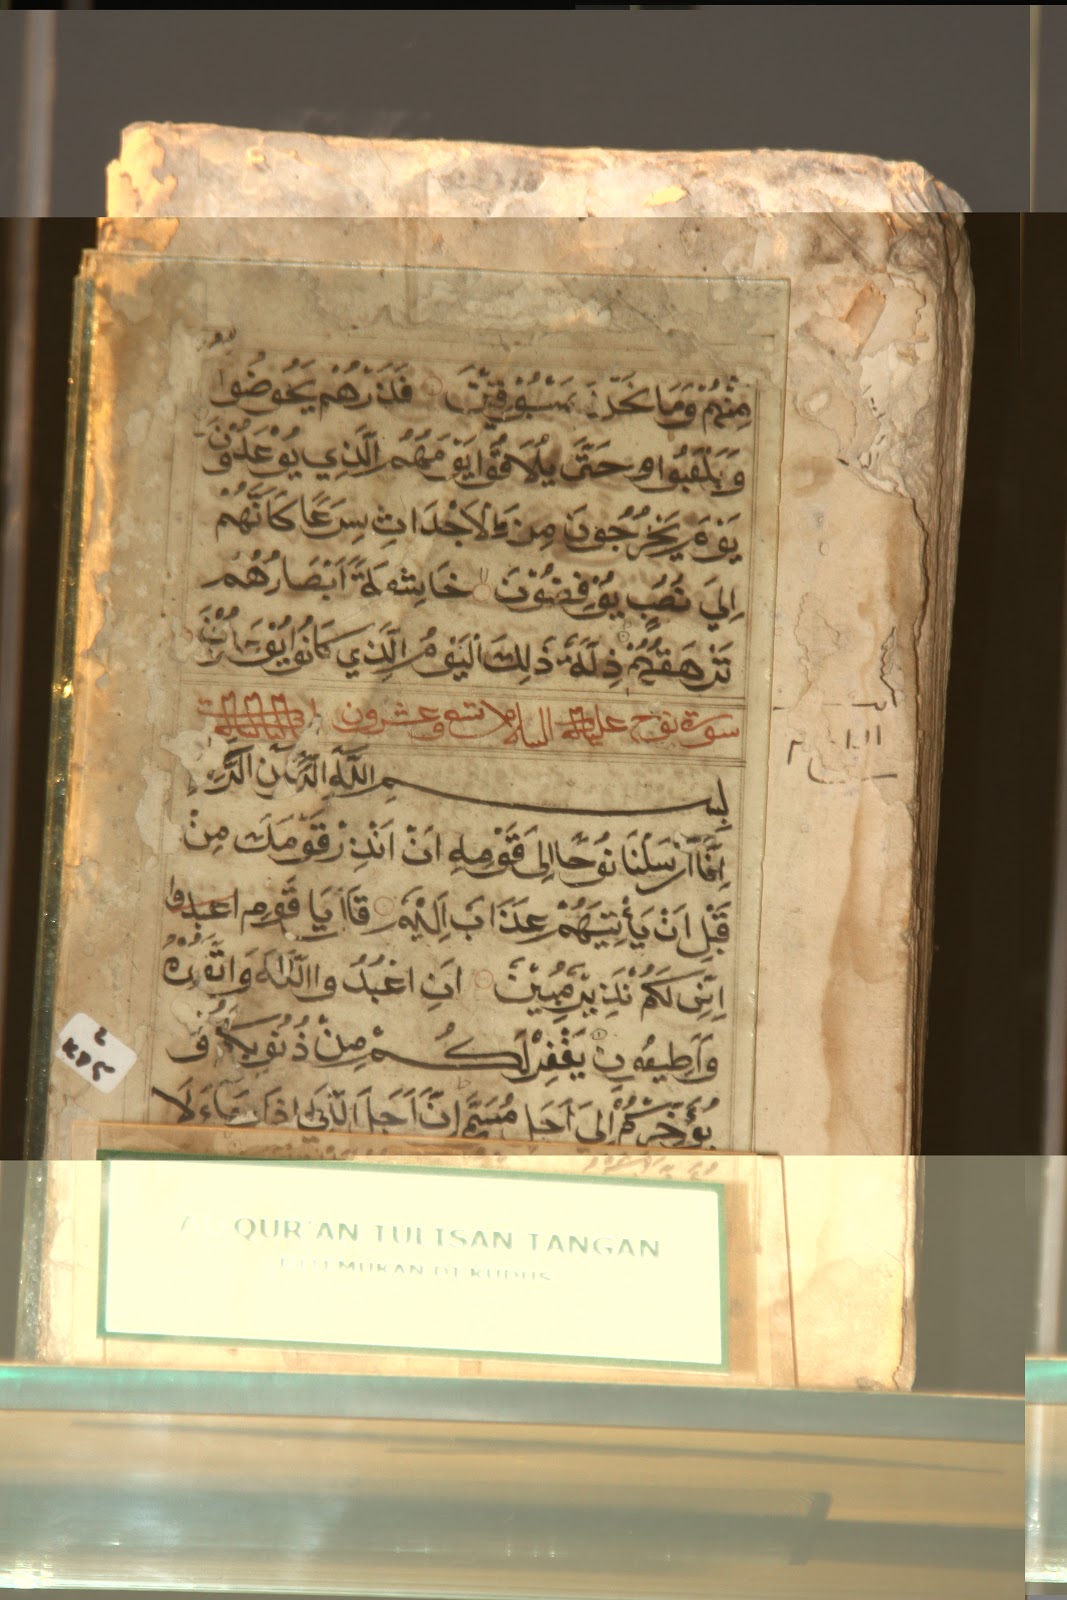 مِنْهُمْ وَمَا نَحْنُ بِمَسْبُوْقِيْنَ فَذَرْهُمْ يَخُوضُوا
وَيَلْعَبُوا حَتَّى يُلَاقُوْا يَوْمَهُمُ الَّذِي يُوْعَدُوْنَ
يَوْمَ يَخْرُجُونَ مِنَ الْاَجْدَاثِ سِرَاعًا كَاَنَّهُمْ
اِلَى نُصُبٍ يُوْفِضُوْنَ خَاشِعَةً اَبْصَارُهُمْ
تَرْهَقُهُمْ ذِلَّةٌ ذٰلِكَ الْيَوْمُ الَّذِي كَانُوا يُوْعَدُوْنَ
سورة نوح عليه السلام تسع وعشرون
بسم الله الرحمن الر
اِنَّا اَرْسَلْنَا نُوحًا اِلَى قَوْمِهِ اَنْ اَنْذِرْ قَوْمَكَ مِنْ
قَبْلِ اَنْ يَأْتِيَهُمْ عَذَابٌ اَلِيْمٌ قَالَ يَا قَوْمِ اعبدوا
اِنِّي لَكُمْ نَذِيْرٌ مُبِيْنٌ اَنِ اعْبُدُوا اللّٰهَ وَاتَّقُوْهُ
وَاَطِيعُونِ يَغْفِرْ لَكُمْ مِنْ ذُنُوْبِكُمْ وَ
يُؤَخِّرْكُمْ اِلَى اَجَلٍ مُسَمًّى اِنَّ اَجَلَ اللّٰهِ اِذَا جَاءَ لَا
QUR'AN TULISAN TANGAN
DITEMUKAN DI KUDUS